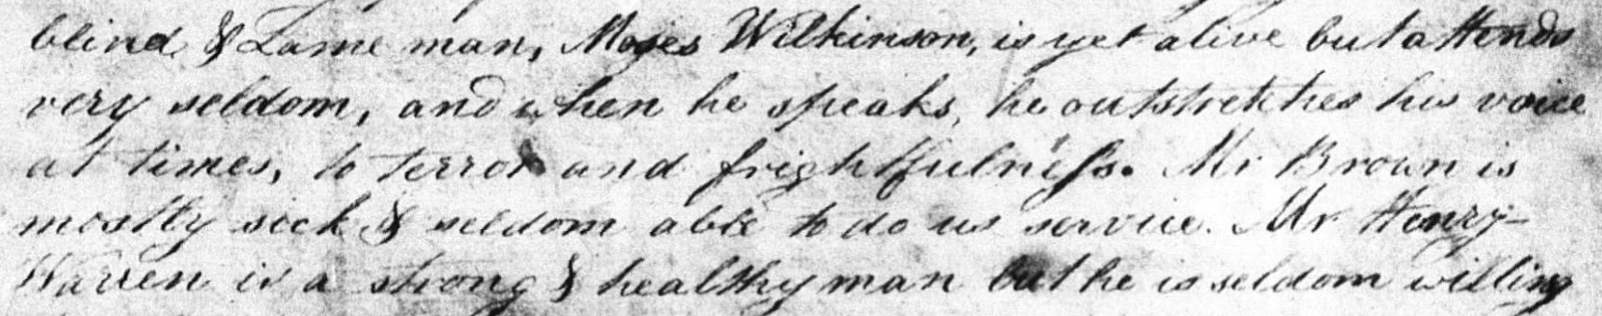 blind & Lame man, Moses Wilkinson, is yet alive but attends
very seldom, and when he speaks, he outstretches his voice
at times, to terror and frightfulness. Mr Brown is
mostly sick & seldom able to do us service. Mr Henry
Warren is a strong & healthy man but he is seldom willing